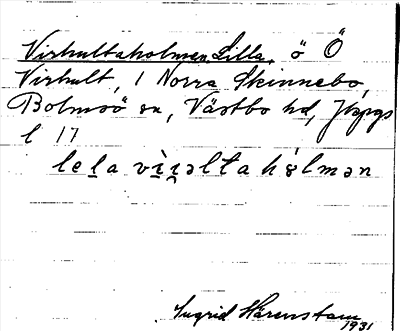 Virhultaholmen, Lilla, ö Ö
Virhult, 1 Norra Skinnebo,
Bolmsö sn, Västbo hd, Jkpgs
l 17
lela vi̯ɪəlta hɵ́lmən
Ingrid Härenstam
1931